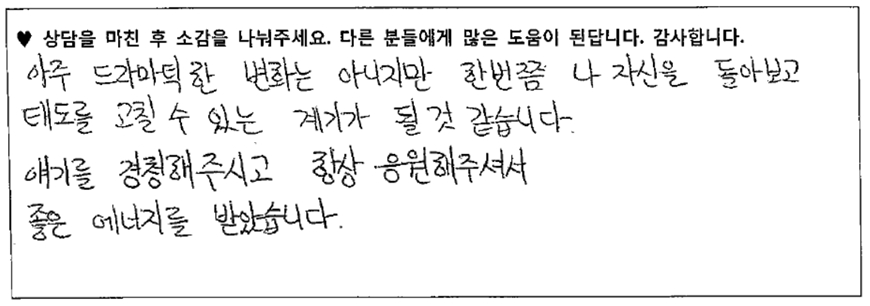 ♥ 상담을 마친 후 소감을 나눠주세요. 다른 분들에게 많은 도움이 된답니다. 감사합니다.
아주 드라마틱한 변화는 아니지만 한번쯤 나 자신을 돌아보고
태도를 고칠 수 있는 계기가 될 것 같습니다.
얘기를 경청해주시고 항상 응원해주셔서
좋은 에너지를 받았습니다.